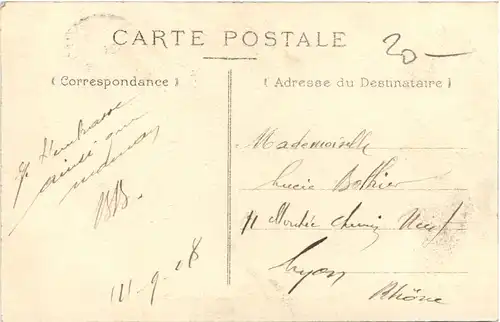 CARTE POSTALE
20-
(Correspondance)
(Adresse du Destinataire)
je t'embrasse
ainsi que
maman
BB.
14-9-08
Mademoiselle
Lucie Bothier
11 Montée Chemin Neuf
Lyon
Rhône